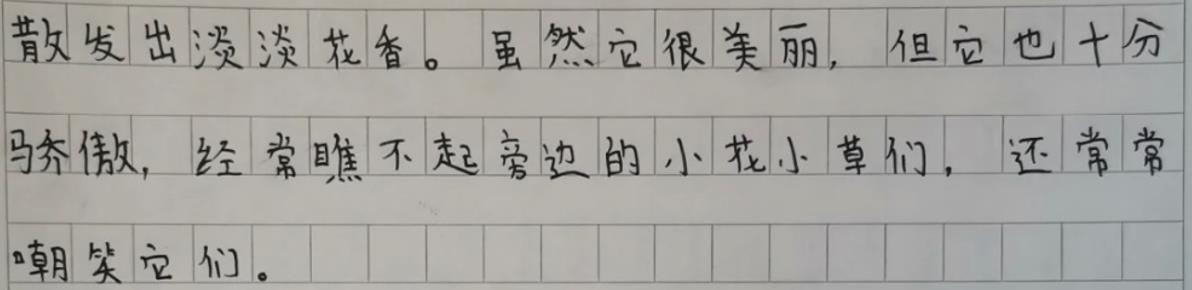 散发出淡淡花香。虽然它很美丽，但它也十分
骄傲，经常瞧不起旁边的小花小草们，还常常
嘲笑它们。